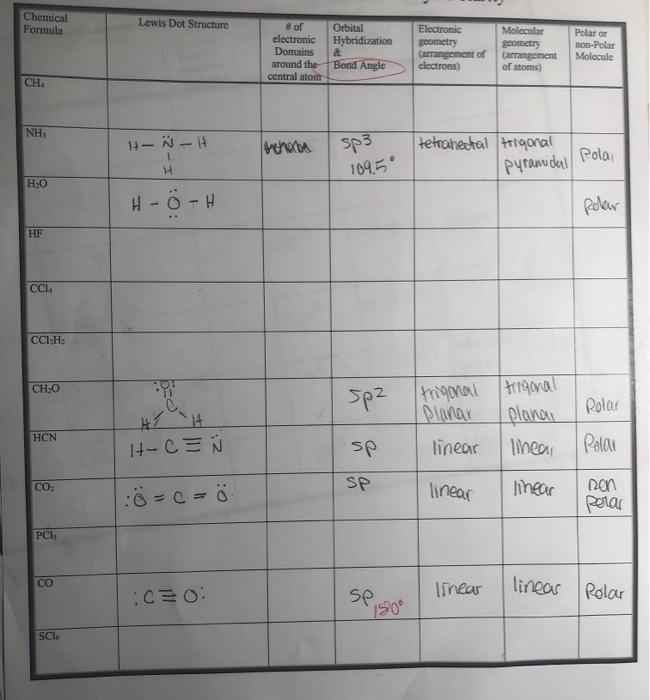 Chemical Formula
Lewis Dot Structure
# of electronic Domains around the central atom
Orbital Hybridization & Bond Angle
Electronic geometry (arrangement of electrons)
Molecular geometry (arrangement of atoms)
Polar or non-Polar Molecule
CH₄
NH₃
H - N̈ - H
|
H
sp3
109.5°
tetrahedral
trigonal pyramidal
Polar
H₂O
H - Ö - H
Polar
HF
CCl₄
CCl₂H₂
CH₂O
:O:
C
H H
sp2
trigonal planar
trigonal planar
Polar
HCN
H - C ≡ N̈
sp
linear
linear
Polar
CO₂
:Ö = C = Ö:
sp
linear
linear
non polar
PCl₅
CO
:C ≡ O:
sp
180°
linear
linear
Polar
SCl₆